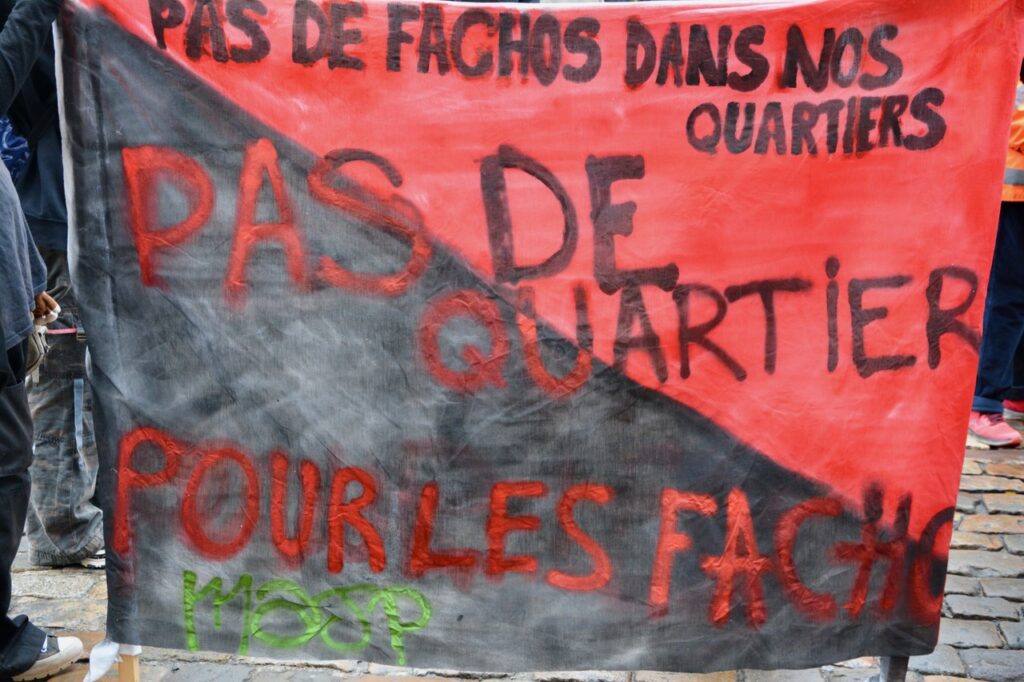 PAS DE FACHOS DANS NOS
QUARTIERS
PAS DE
QUARTiER
POUR LES FACHO